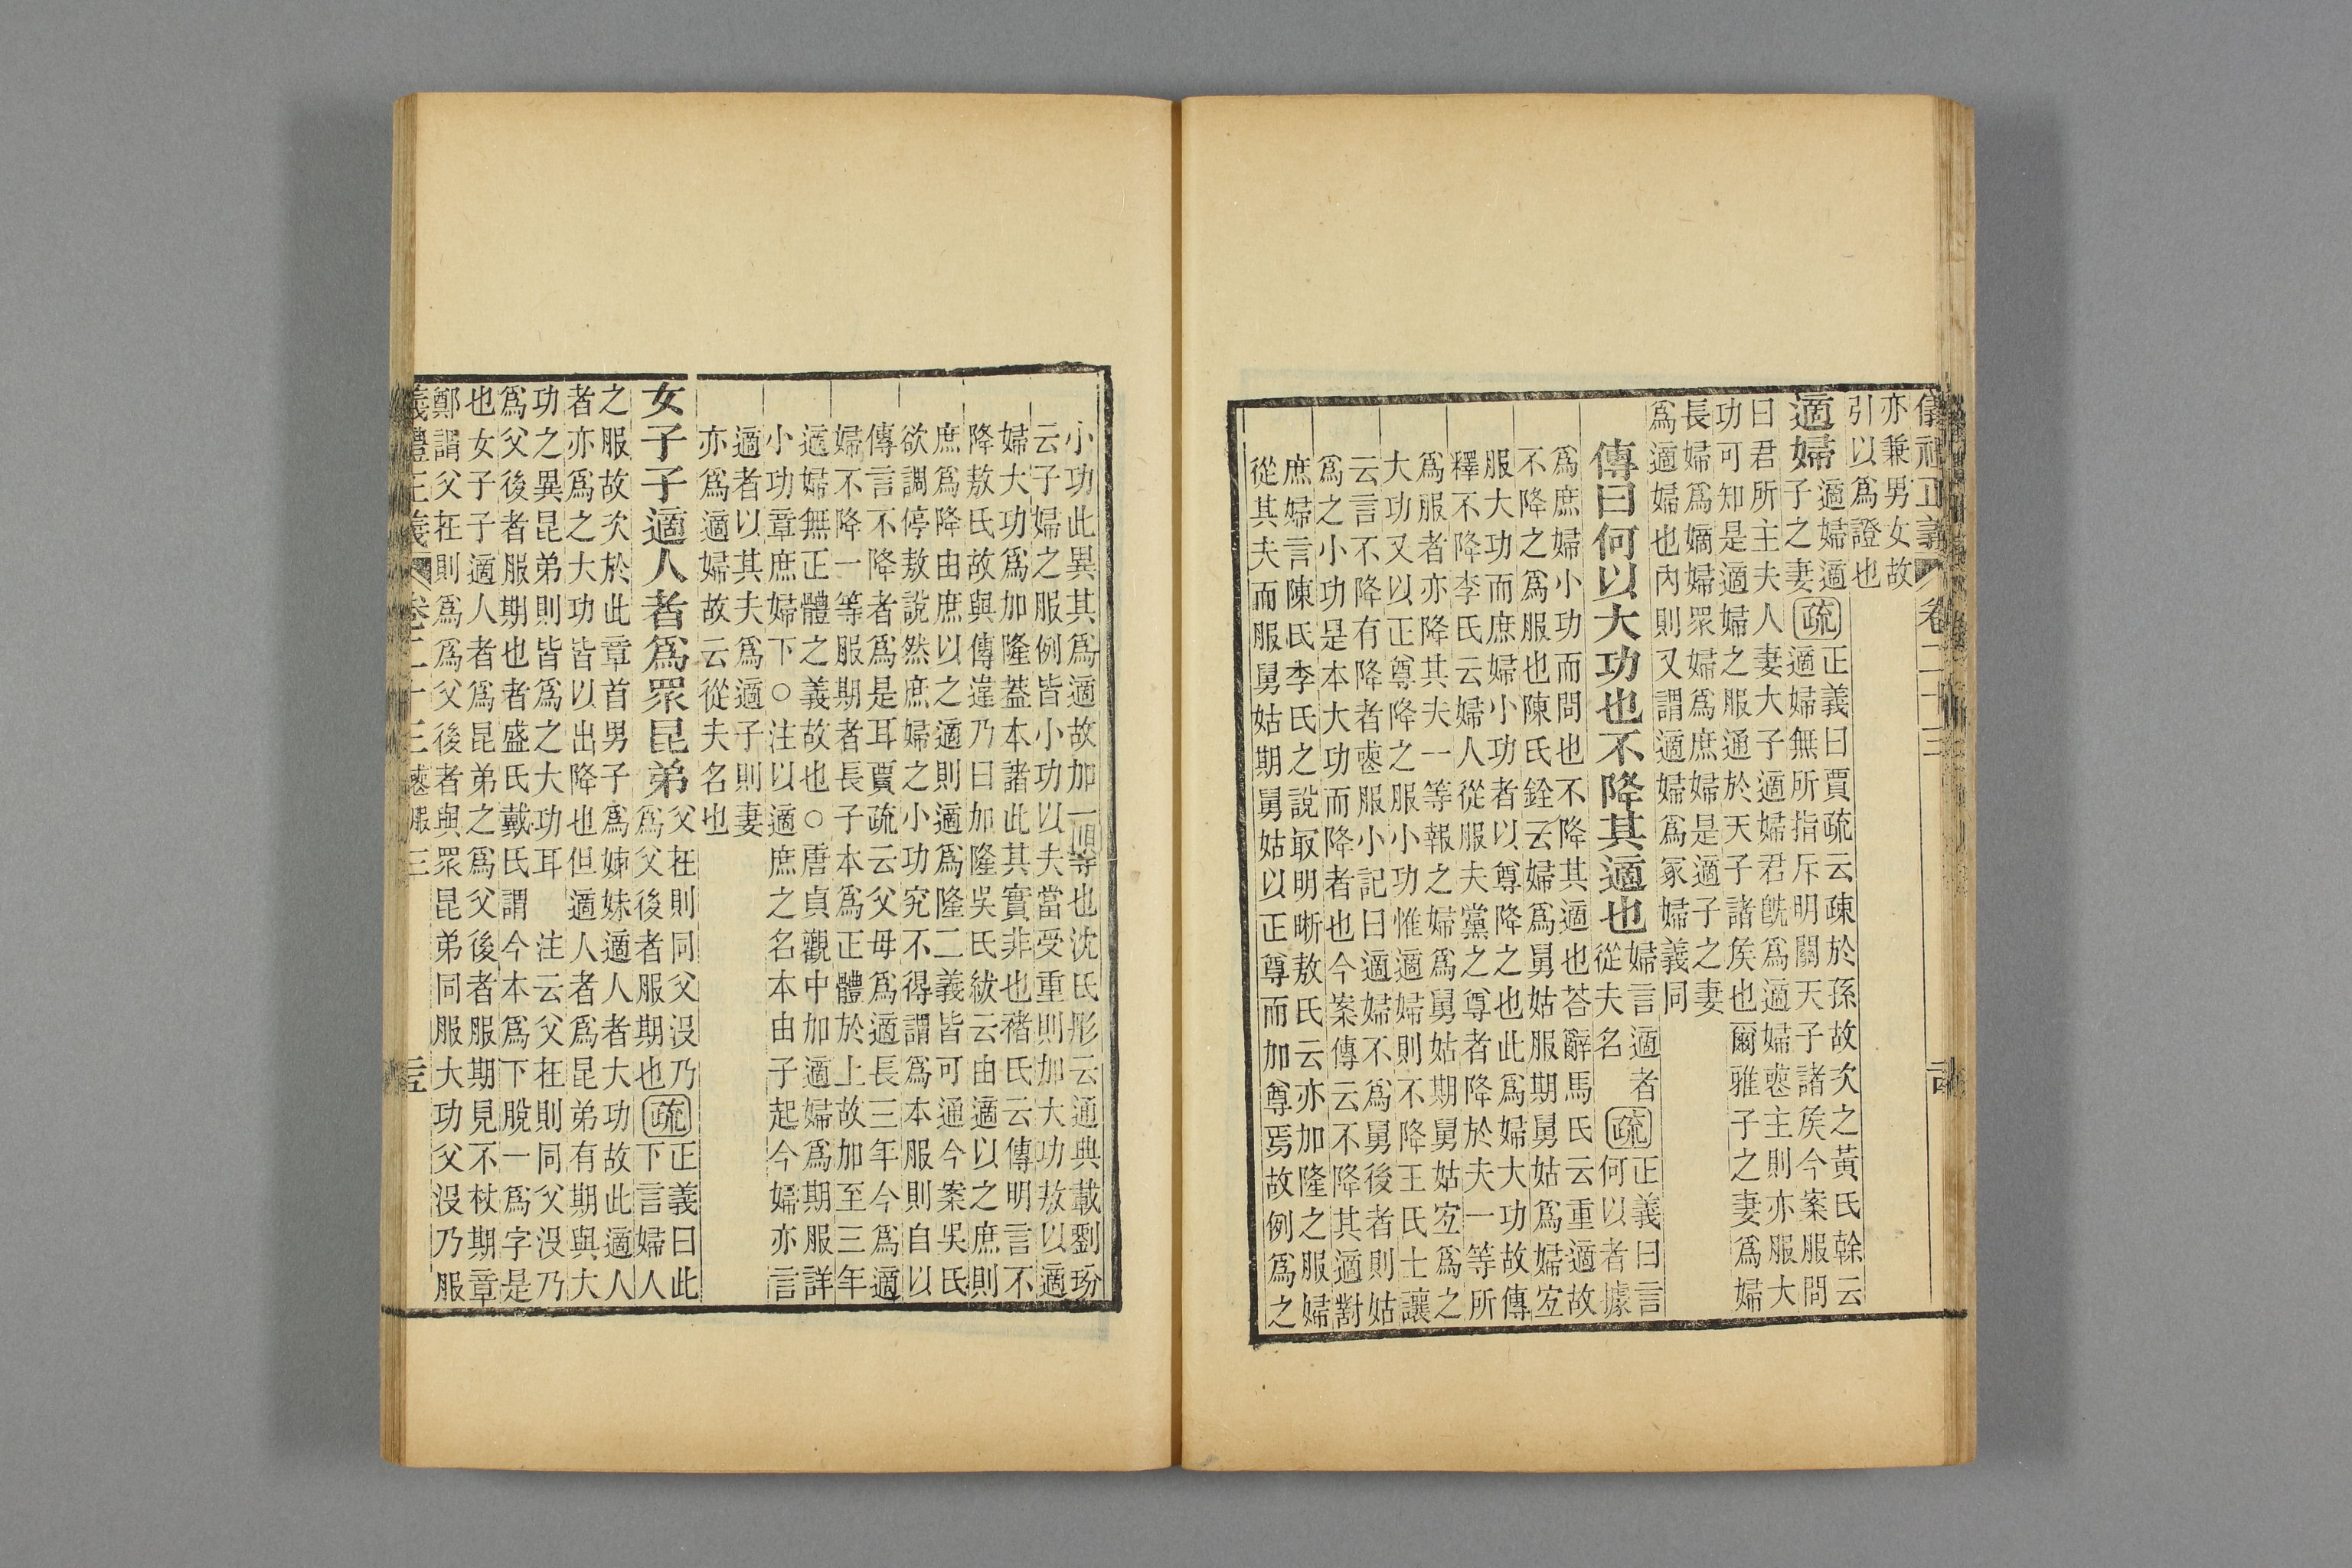 儀禮正義 卷二十三
亦兼男女故
引以爲證也
適婦
適婦適
子之妻
疏
正義曰賈疏云疎於孫故次之黃氏榦云
適婦無所指斥明關天子諸矦今案服問
曰君所主夫人妻大子適婦君旣爲適婦喪主則亦服大
功可知是適婦之服通於天子諸矦也爾雅子之妻爲婦
長婦爲嫡婦眾婦爲庶婦是適子之妻
爲適婦也內則又謂適婦爲冢婦義同
傳曰何以大功也不降其適也
婦言適者
從夫名
疏
正義曰言
何以者據
爲庶婦小功而問也不降其適也荅辭馬氏云重適故
不降之爲服也陳氏銓云婦爲舅姑服期舅姑爲婦宐
服大功而庶婦小功者以尊降之也此爲婦大功故傳
釋不降李氏云婦人從服夫黨之尊者降於夫一等所
爲服者亦降其夫一等報之婦爲舅姑期舅姑宐爲之
大功又以正尊降之服小功惟適婦則不降王氏士讓
云言不降有降者喪服小記曰適婦不爲舅後者則姑
爲之小功是本大功而降者也今案傳云不降其適對
庶婦言陳氏李氏之說㝡明晰敖氏云亦加隆之服婦
從其夫而服舅姑期舅姑以正尊而加尊焉故例爲之
小功此異其爲適故加一等也沈氏彤云通典載劉玢
云子婦之服例皆小功以夫當受重則加大功敖以適
婦大功爲加隆葢本諸此其實非也褚氏云傳明言不
降敖氏故與傳違乃曰加隆吳氏紱云由適以之庶則
庶爲降由庶以之適則適爲隆二義皆可通今案吳氏
欲調停敖說然庶婦之小功究不得謂爲本服則自以
傳言不降者爲是耳賈疏云父母爲適長三年今爲適
婦不降一等服期者長子本爲正體於上故加至三年
適婦無正體之義故也○唐貞觀中加適婦爲期服詳
小功章庶婦下○注以適庶之名本由子起今婦亦言
適者以其夫爲適子則妻
亦爲適婦故云從夫名也
女子子適人者爲眾昆弟
父在則同父没乃
爲父後者服期也
疏
正義曰此
下言婦人
之服故次於此章首男子爲姊妹適人者大功故此適人
者亦爲之大功皆以出降也但適人者爲昆弟有期與大
功之異昆弟則皆爲之大功耳 注云父在則同父没乃
爲父後者服期也者盛氏戴氏謂今本爲下脫一爲字是
也女子子適人者爲昆弟之爲父後者服期見不杖期章
鄭謂父在則爲爲父後者與眾昆弟同服大功父没乃服
義禮正義 卷二十三 喪服三